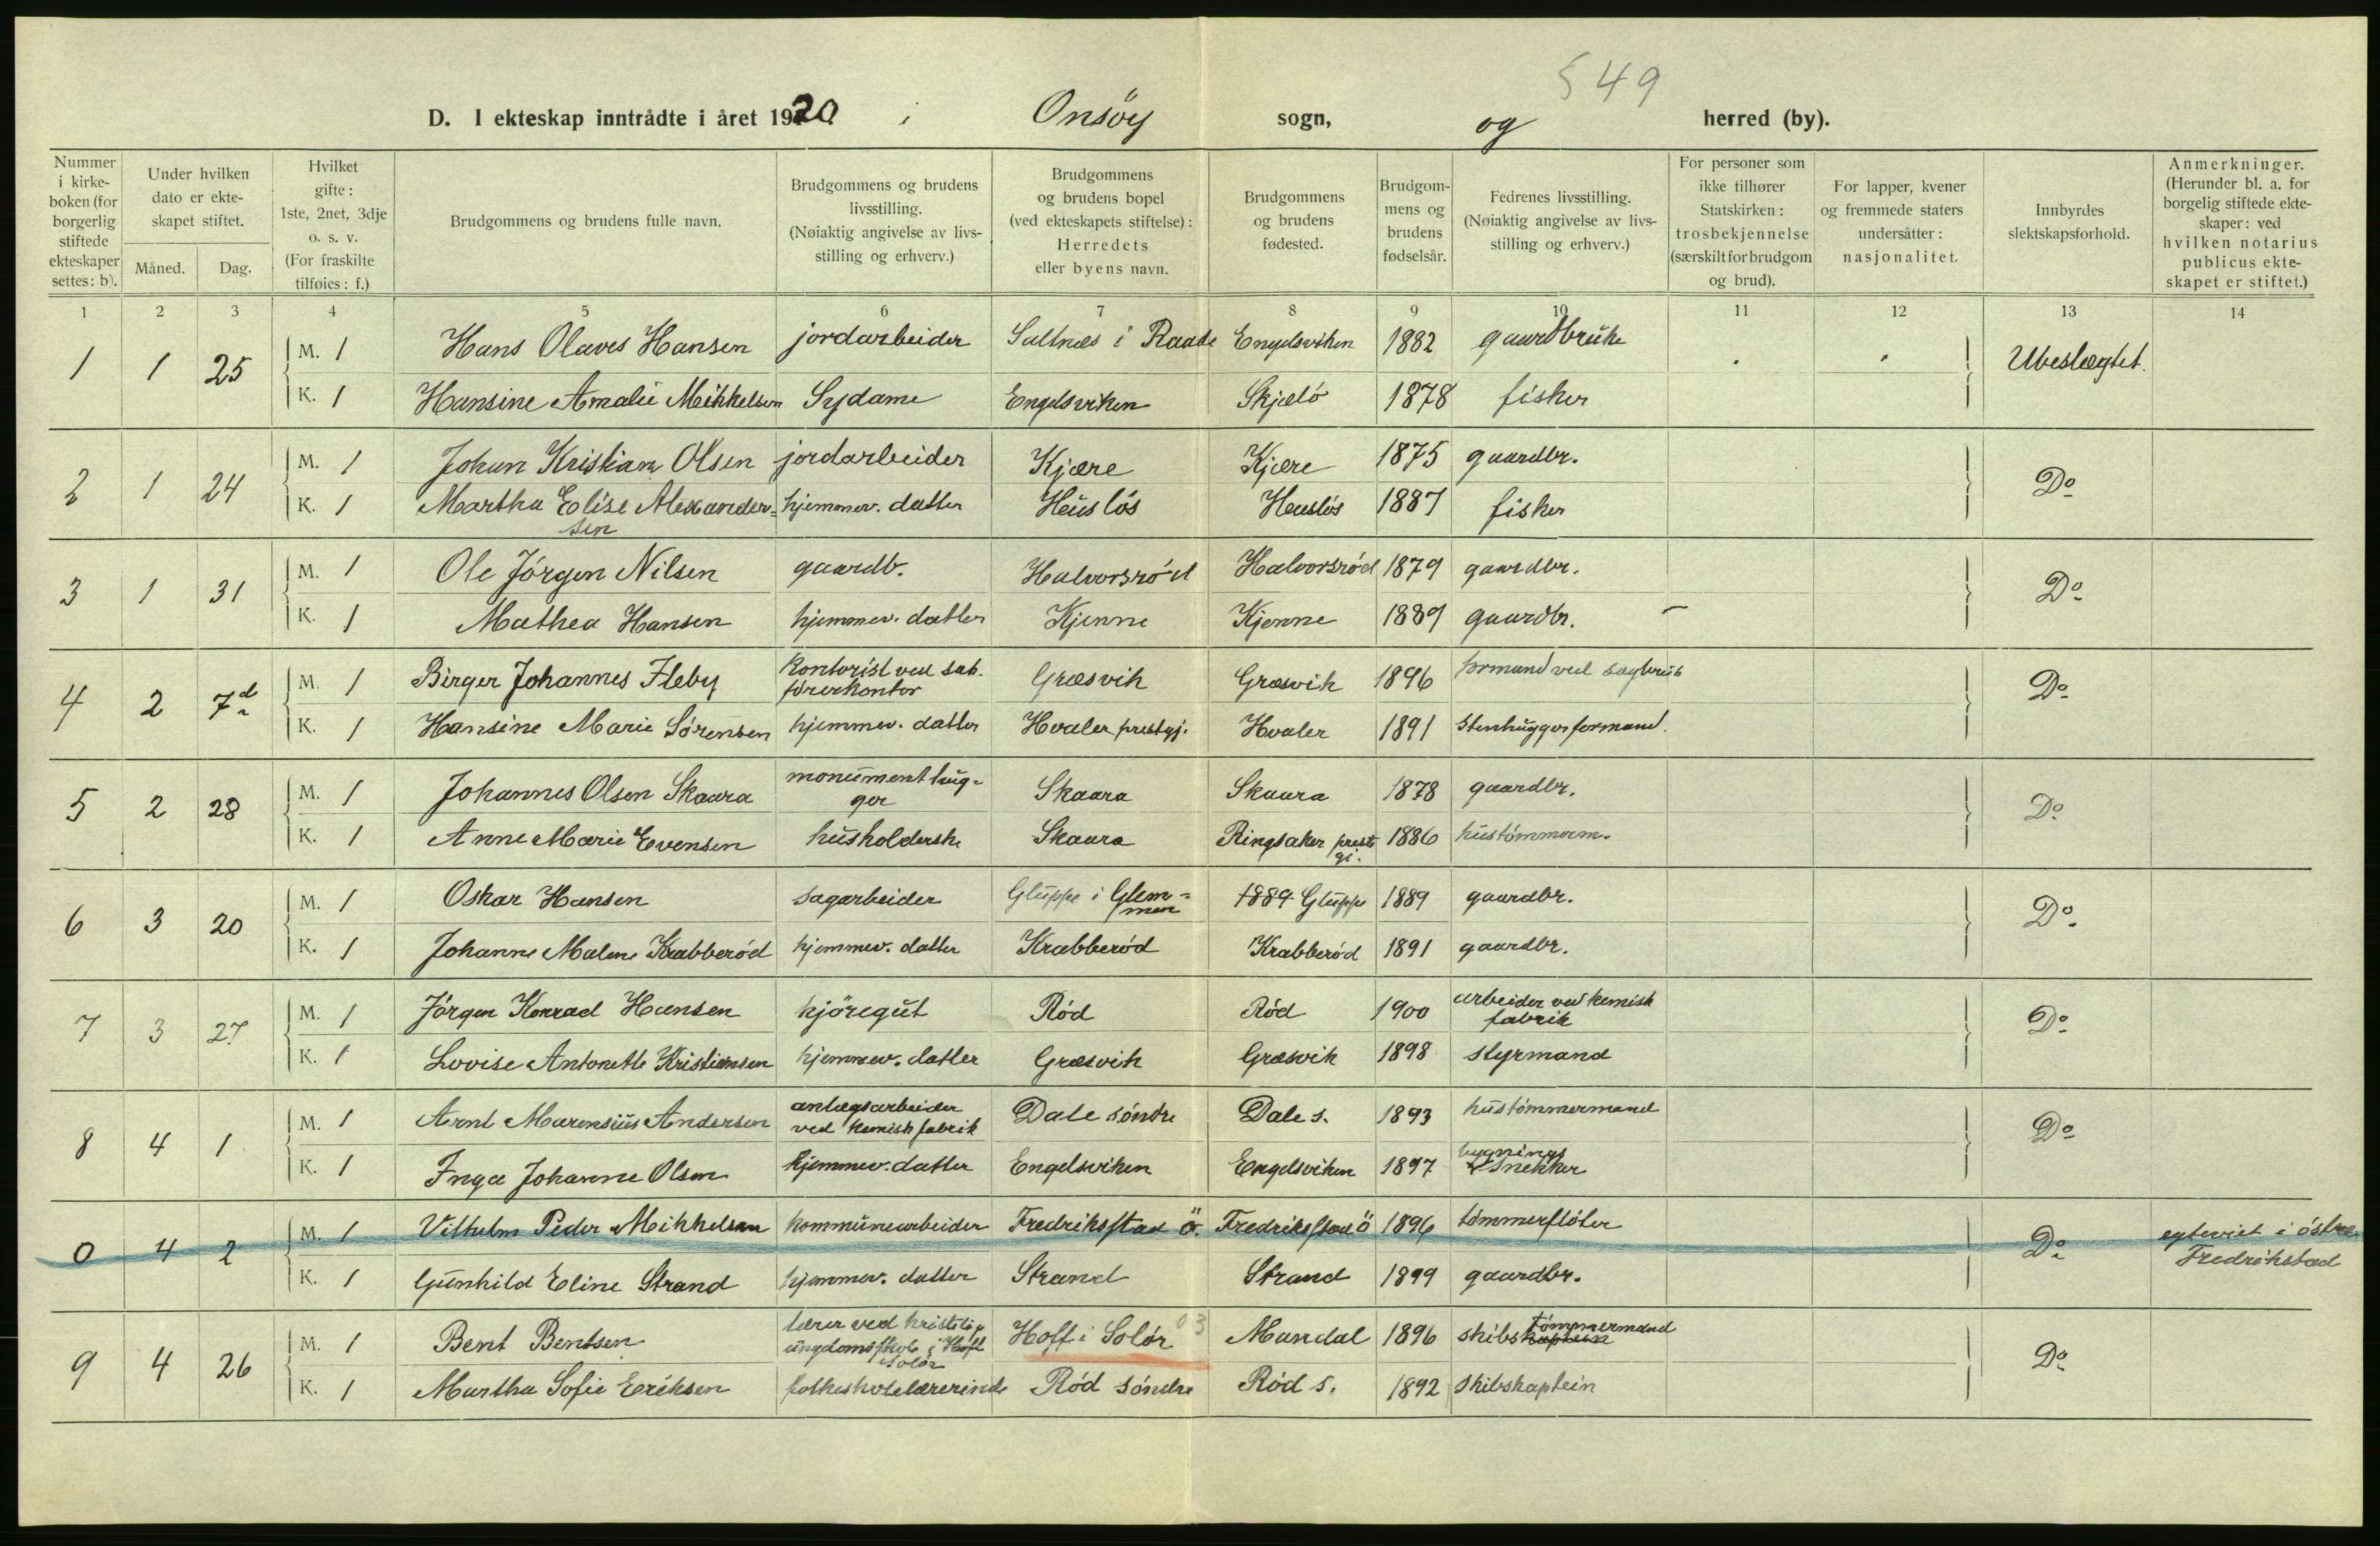 § 49
D. I ekteskap inntrådte i året 1920 i Onsöy sogn, og herred (by).
Nummer i kirkeboken (for borgerlig stiftede ekteskaper settes: b).
Under hvilken dato er ekteskapet stiftet.
Måned. Dag.
Hvilket gifte: 1ste, 2net, 3dje o. s. v. (For fraskilte tilføies: f.)
Brudgommens og brudens fulle navn.
Brudgommens og brudens livsstilling. (Nøiaktig angivelse av livsstilling og erhverv.)
Brudgommens og brudens bopel (ved ekteskapets stiftelse): Herredets eller byens navn.
Brudgommens og brudens fødested.
Brudgommens og brudens fødselsår.
Fedrenes livsstilling. (Nøiaktig angivelse av livsstilling og erhverv.)
For personer som ikke tilhører Statskirken: trosbekjennelse (særskilt for brudgom og brud).
For lapper, kvener og fremmede staters undersåtter: nasjonalitet.
Innbyrdes slektskapsforhold.
Anmerkninger. (Herunder bl. a. for borgelig stiftede ekteskaper: ved hvilken notarius publicus ekteskapet er stiftet.)
1 2 3 4 5 6 7 8 9 10 11 12 13 14
1 1 25 M. 1 Hans Olaves Hansen jordarbeider Saltnæs i Raade Engelsviken 1882 gaardbruke Ubeslægtet.
K. 1 Hansine Amalie Mikkelsen Sydame Engelsviken Skjælö 1878 fisker
2 1 24 M. 1 Johan Kristian Olsen jordarbeider Kjære Kjære 1875 gaardbr. Do
K. 1 Martha Elise Alexandersen hjemmev. datter Heuslös Heuslös 1887 fisker
3 1 31 M. 1 Ole Jörgen Nilsen gaardb. Halvorsröd Halvorsröd 1879 gaardbr. Do
K. 1 Mathea Hansen hjemmev. datter Kjenne Kjenne 1889 gaardbr.
4 2 7d M. 1 Birger Johannes Fleby Kontorist ved sakförerkontor Græsvik Græsvik 1896 formand ved sagbruk Do
K. 1 Hansine Marie Sörensen hjemmev. datter Hvaler prestgj. Hvaler 1891 Stenhuggerformand.
5 2 28 M. 1 Johannes Olsen Skaara monumenthugger Skaara Skaara 1878 gaardbr. Do
K. 1 Anne Marie Evensen husholderske Skaara Ringsaker prestgj. 1886 hustömmerm.
6 3 20 M. 1 Oskar Hansen sagarbeider Gluppe i Glemmen 1889 Gluppe 1889 gaardbr. Do
K. 1 Johanne Malene Krabberöd hjemmev. datter Krabberöd Krabberöd 1891 gaardbr.
7 3 27 M. 1 Jörgen Konrad Hansen kjöregut Röd Röd 1900 arbeider ved kemisk fabrik Do
K. 1 Lovise Antonette Kristiansen hjemmev. datter Græsvik Græsvik 1898 styrmand
8 4 1 M. 1 Arnt Marensius Andersen anlægsarbeider ved kemisk fabrik Dale söndre Dale s. 1893 hustömmermand Do
K. 1 Inga Johanne Olsen hjemmev. datter Engelsviken Engelsviken 1897 bygningssnekker
0 4 2 M. 1 Vilhelm Peder Mikkelsen kommunearbeider Fredriksstad Ö. Fredriksstad Ö 1896 tömmerflöter Do egteviet i östre Fredrikstad
K. 1 Gunhild Eline Strand hjemmev. datter Strand Strand 1899 gaardbr.
9 4 26 M. 1 Bent Bentsen lærer ved kristelig ungdomsskole i Hoff Solör Hoff i Solör 03 Mandal 1896 skibskaptein tömmermand Do
K. 1 Martha Sofie Eriksen folkeskolelærerinde Röd söndre Röd s. 1892 Skibskaptein